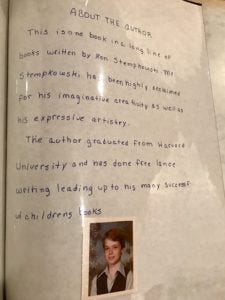 ABOUT THE AUTHOR
This is one book in a long line of
books written by Ron Stempkowski. Mr
Stempkowski has been highly acclaimed
for his imaginative creativity as well as
his expressive artistry.
The author graduated from Harvard
University and has done free lance
writing leading up to his many success
w/childrens books